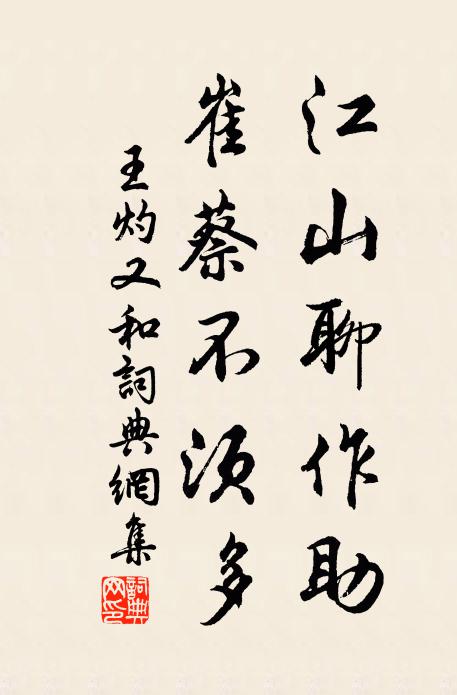 江山聊作助
崔蔡不須多
王灼又和詞典網集
詞典
網印